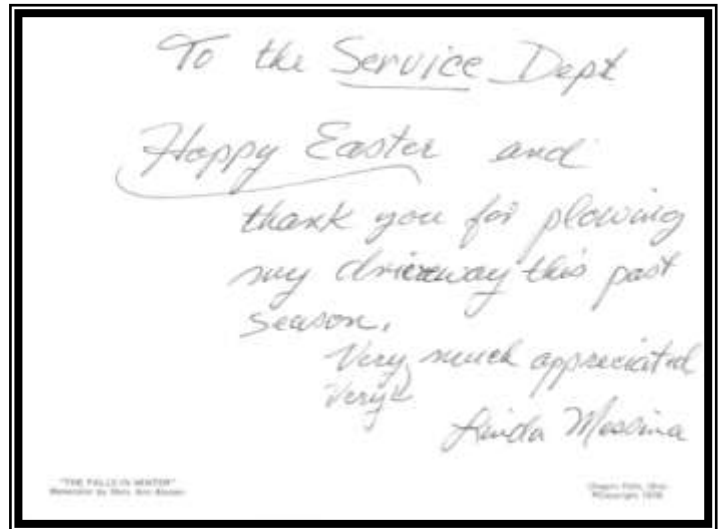 To the Service Dept
Happy Easter and
thank you for plowing
my driveway this past
season.
Very much appreciated
Very
Linda Messina
"THE FALLS IN WINTER"
Watercolor by Mary Ann
Chagrin Falls, Ohio
©Copyright